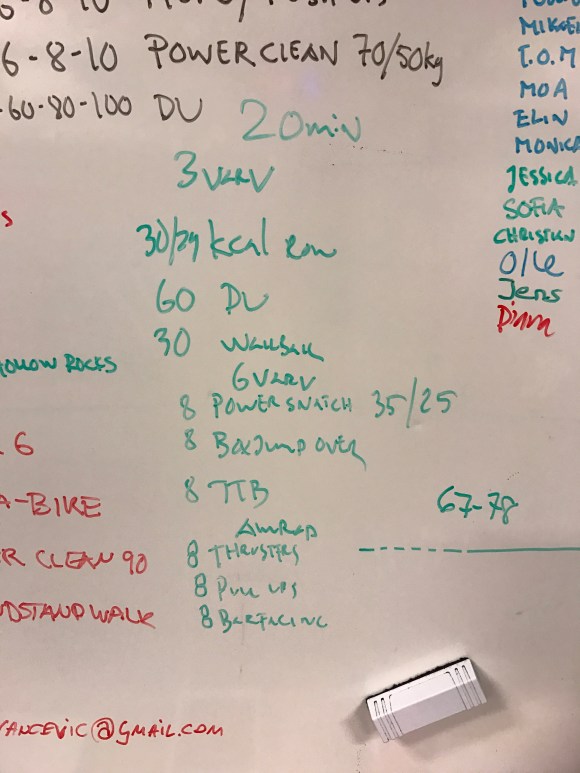 6-8-10 POWER CLEAN 70/50kg
-60-80-100 DU
20min
3 VARV
kcal row
60 DU
30 WALLBALL
6 VARV
8 POWER SNATCH 35/25
8 BOXJUMP OVER
8 TTB
AMRAP
8 THRUSTERS
8 PULL UPS
8 BARFACING
67-78
HOLLOW ROCKS
6
A-BIKE
R CLEAN 90
NDSTANDWALK
VANCEVIC@GMAIL.COM
T.O.M
MOA
ELIN
MONICA
JESSICA
SOFIA
CHRISTIAN
Olle
Jens